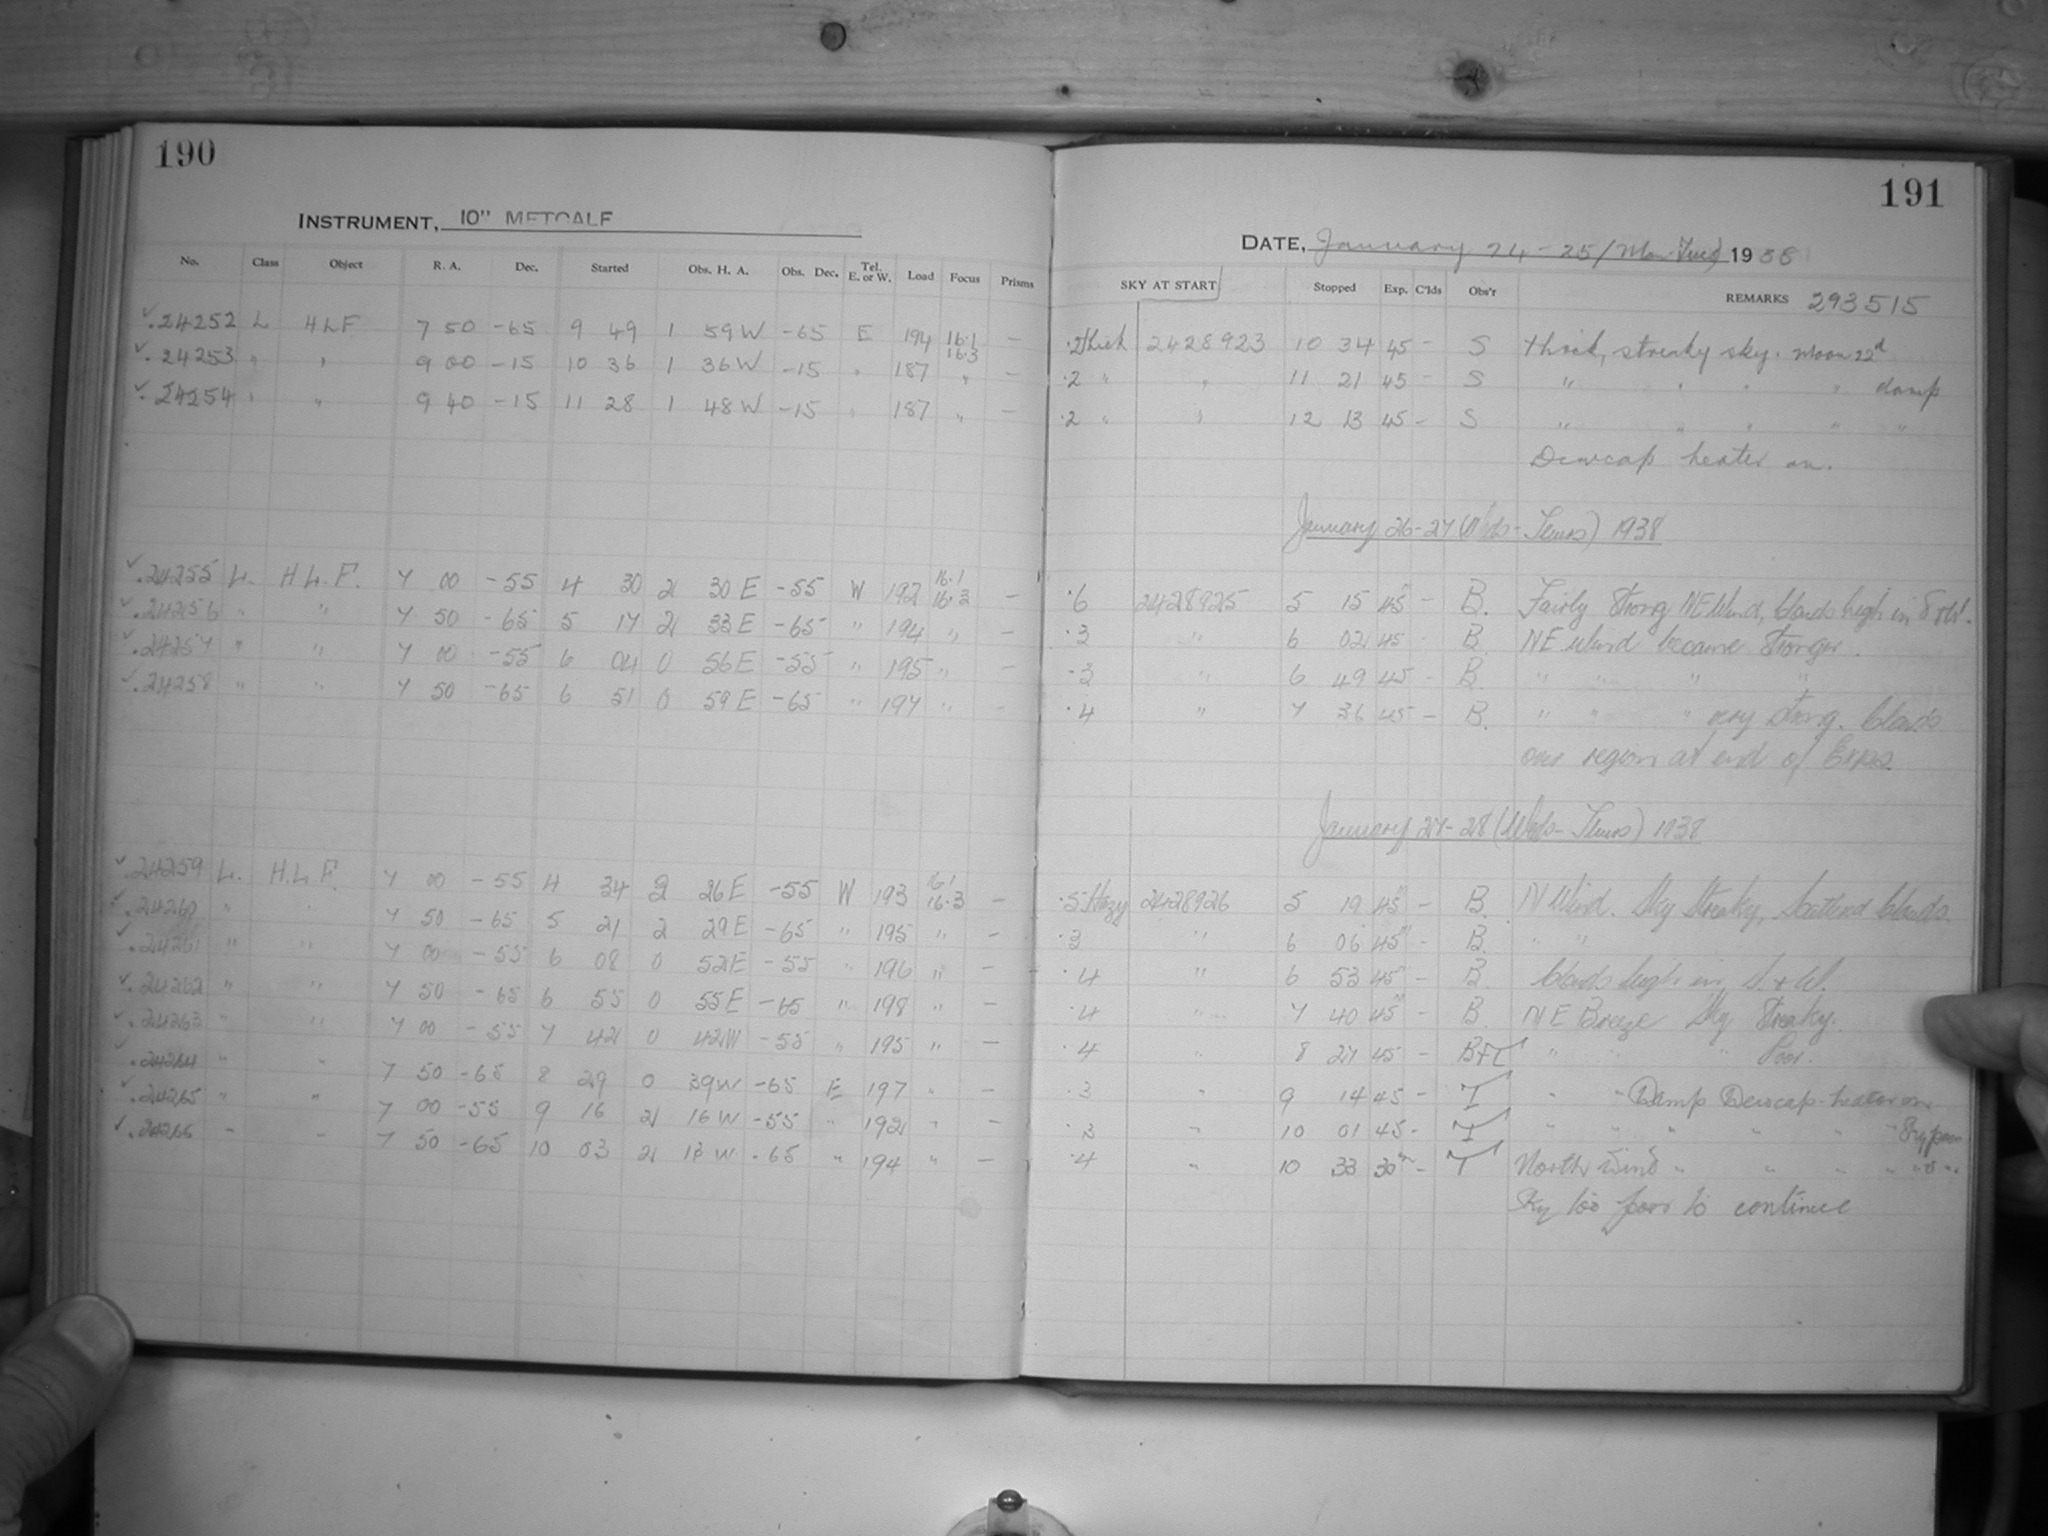 190
INSTRUMENT, 10" METCALF
No. Class Object R. A. Dec. Started Obs. H. A. Obs. Dec. Tel. E. or W. Load Focus Prisms
✓.24252 L HLF 7 50 -65 9 49 1 59W -65 E 194 16.1 16.3 —
✓.24253 " " 9 00 -15 10 36 1 36W -15 " 187 " —
✓.24254 " " 9 40 -15 11 28 1 48W -15 " 187 " —
✓.24255 L. H.L.F. 7 00 -55 4 30 2 30E -55 W 192 16.1 16.3 —
✓.24256 " " 7 50 -65 5 17 2 33E -65 " 194 " —
✓.24257 " " 7 00 -55 6 04 0 56E -55 " 195 " —
✓.24258 " " 7 50 -65 6 51 0 59E -65 " 197 " —
✓.24259 L. H.L.F. 7 00 -55 4 34 2 26E -55 W 193 16.1 16.3 —
✓.24260 " " 7 50 -65 5 21 2 29E -65 " 195 " —
✓.24261 " " 7 00 -55 6 08 0 52E -55 " 196 " —
✓.24262 " " 7 50 -65 6 55 0 55E -65 " 198 " —
✓.24263 " " 7 00 -55 7 42 0 42W -55 " 195 " —
✓.24264 " " 7 50 -65 8 29 0 39W -65 E 197 " —
✓.24265 " " 7 00 -55 9 16 2 16W -55 " 192 " —
✓.24266 " " 7 50 -65 10 03 2 13W -65 " 194 " —
191
DATE, January 24-25/(Mon-Tues) 1938
SKY AT START Stopped Exp. C'lds Obs'r REMARKS 293515
.2 thick 2428923 10 34 45 - S thick, streaky sky. Moon 22d
.2 " " 11 21 45 - S " " " " damp
.2 " " 12 13 45 - S " " " " "
Dewcap heater on.
January 26-27 (Weds-Thurs) 1938
.6 2428925 5 15 45m - B. Fairly Strong NE Wind, Clouds high in S & W.
.3 " 6 02 45 - B. NE Wind became Stronger.
.3 " 6 49 45 - B. " " " "
.4 " 7 36 45 - B. " " " very Strong. Clouds
over region at end of Exps.
January 27-28 (Weds-Thurs) 1938
.5 Hazy 2428926 5 19 45m - B. N Wind. Sky Streaky, Scattered Clouds.
.3 " 6 06 45m - B. " "
.4 " 6 53 45m - B. Clouds high in S. & W.
.4 " 7 40 45m - B. NE Breeze Sky Streaky.
.4 " 8 27 45 - B+T " " " Poor.
.3 " 9 14 45 - T " " Damp Dewcap heater on
.3 " 10 01 45 - T " " " " " " Sky poor
.4 " 10 33 30m - T North Wind " " " " " "
Sky too poor to continue